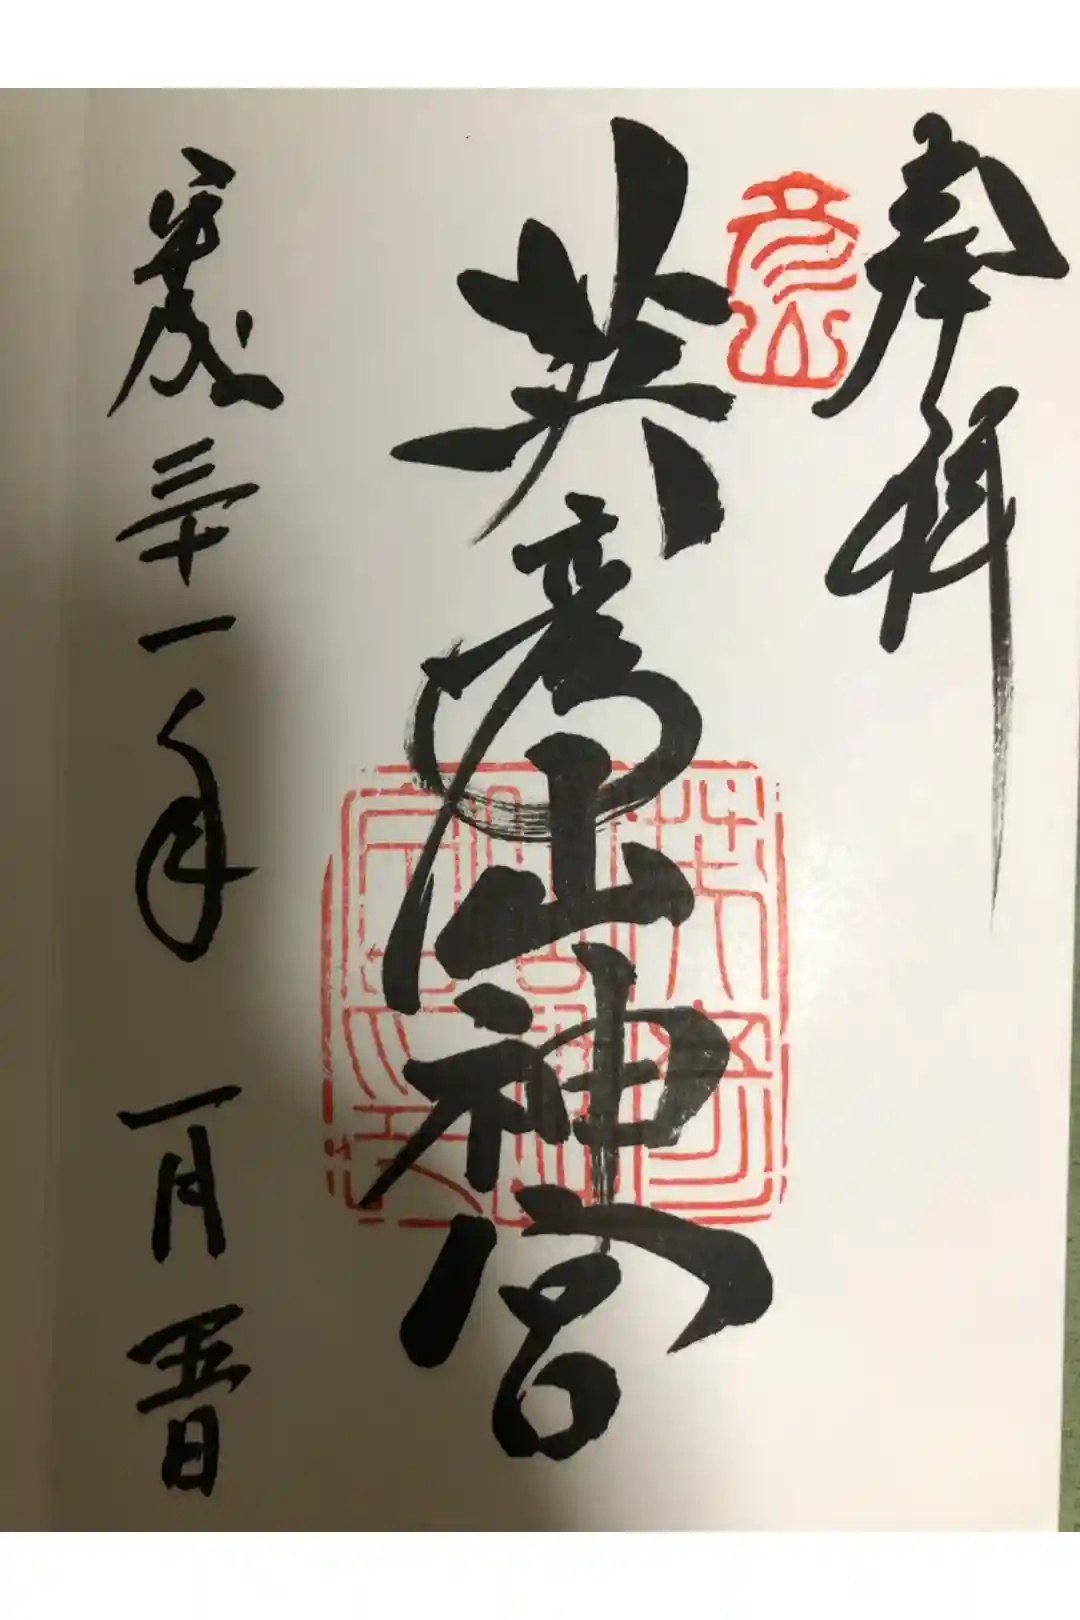 奉拝
彦山
英彦山神宮
平成三十一年 一月 五日